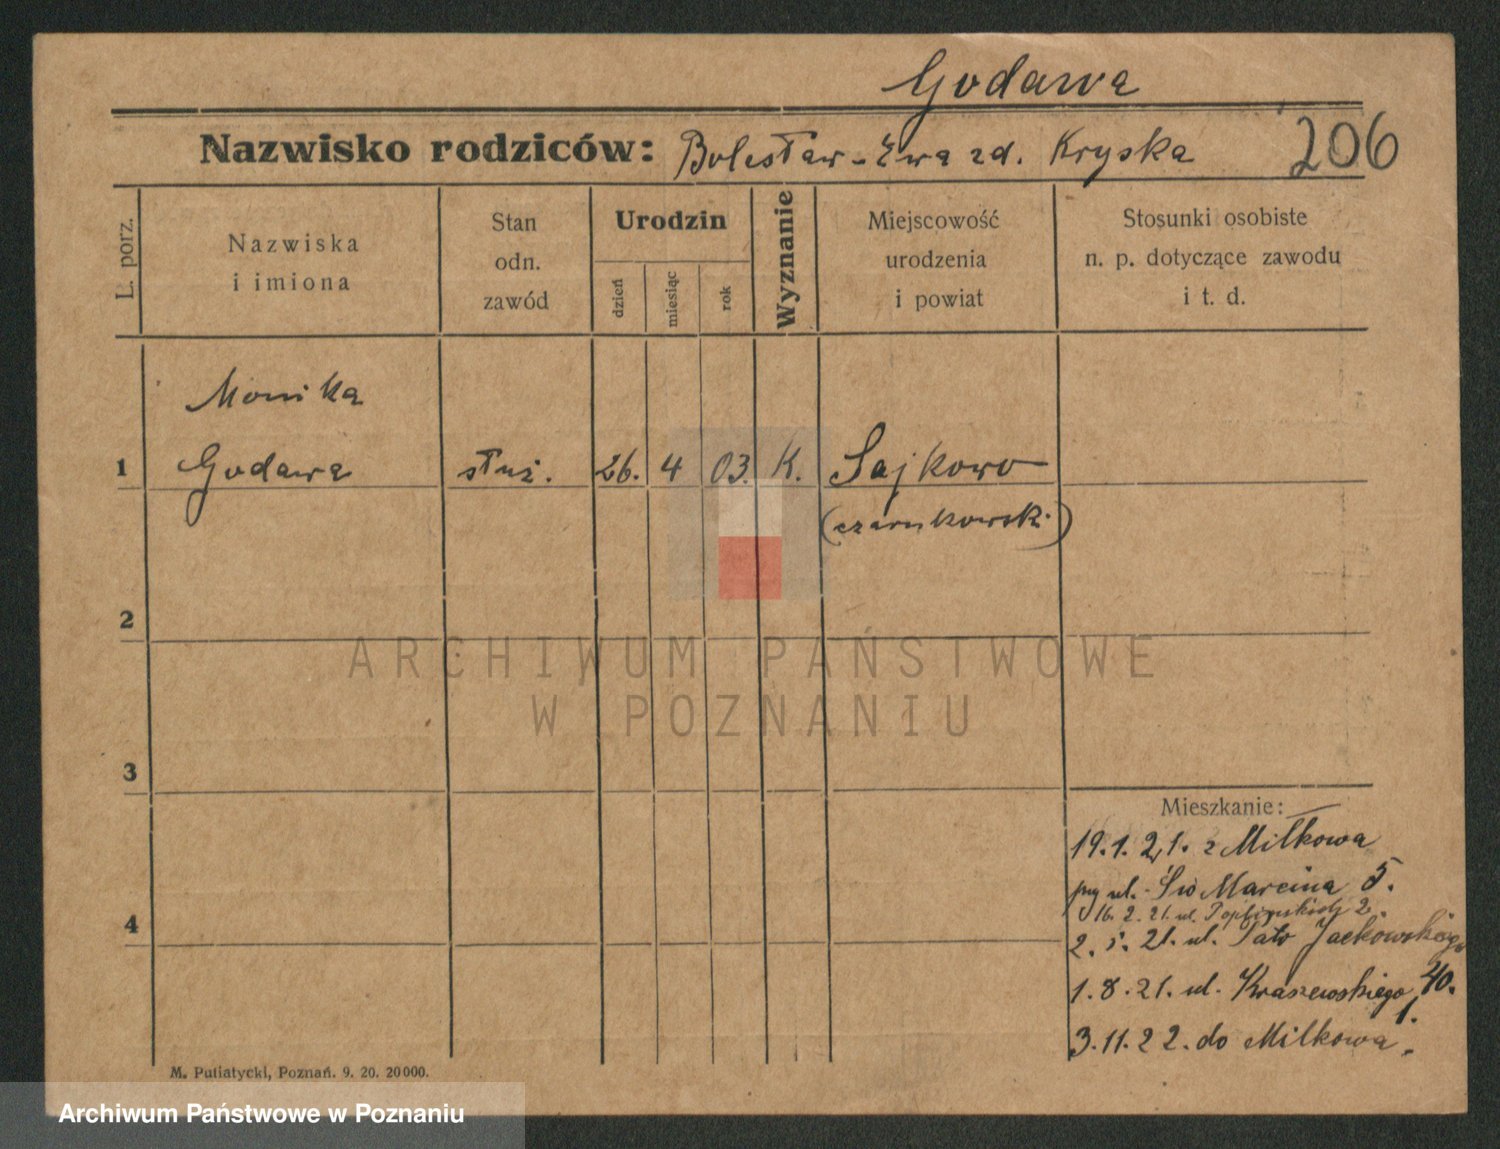 Godawa
Nazwisko rodziców: Bolesław - Ewa zd. Kryska 206
L. porz.
Nazwiska
i imiona
Stan
odn.
zawód
Urodzin
dzień
miesiąc
rok
Wyznanie
Miejscowość
urodzenia
i powiat
Stosunki osobiste
n. p. dotyczące zawodu
i t. d.
Monika
1 Godawa służ. 26. 4 03. K. Sajkowo
(czarnkowski)
2
3
4
Mieszkanie:
19.1.21. z Miłkowa
ul. Św Marcina 5.
16. 2. 21. ul. 2.
2. 5. 21. ul. Jackowskiego
40.
1.8.21. ul. Kraszewskiego
1.
3.11.22. do Milkowa.
M. Putiatycki, Poznań. 9. 20. 20000.
ARCHIWUM PAŃSTWOWE
W POZNANIU
Archiwum Państwowe w Poznaniu